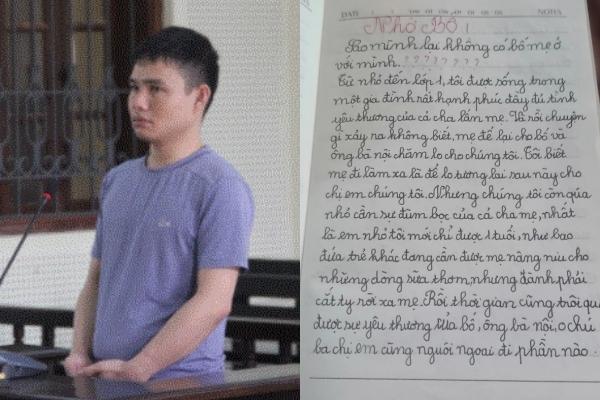 DATE
NOTES
Nhớ Bố !
Sao mình lại không có bố mẹ ở
với mình. ? ? ? ? ? ? ? ?
Từ nhỏ đến lớp 1, tôi được sống trong
một gia đình rất hạnh phúc đầy đủ tình
yêu thương của cả cha lẫn mẹ. Và rồi chuyện
gì xảy ra không biết, mẹ để lại cho bố và
ông bà nội chăm lo cho chúng tôi. Tôi biết
mẹ đi làm xa là để lo tương lai sau này cho
chị em chúng tôi. Nhưng chúng tôi còn quá
nhỏ cần sự đùm bọc của cả cha mẹ, nhất
là em nhỏ tôi mới chỉ được 1 tuổi, như bao
đứa trẻ khác đang cần được mẹ nâng niu cho
những dòng sữa thơm, nhưng đành phải
cất ty rời xa mẹ. Rồi thời gian cũng trôi qua
được sự yêu thương của bố, ông bà nội, o chú
ba chị em cũng nguôi ngoai đi phần nào.